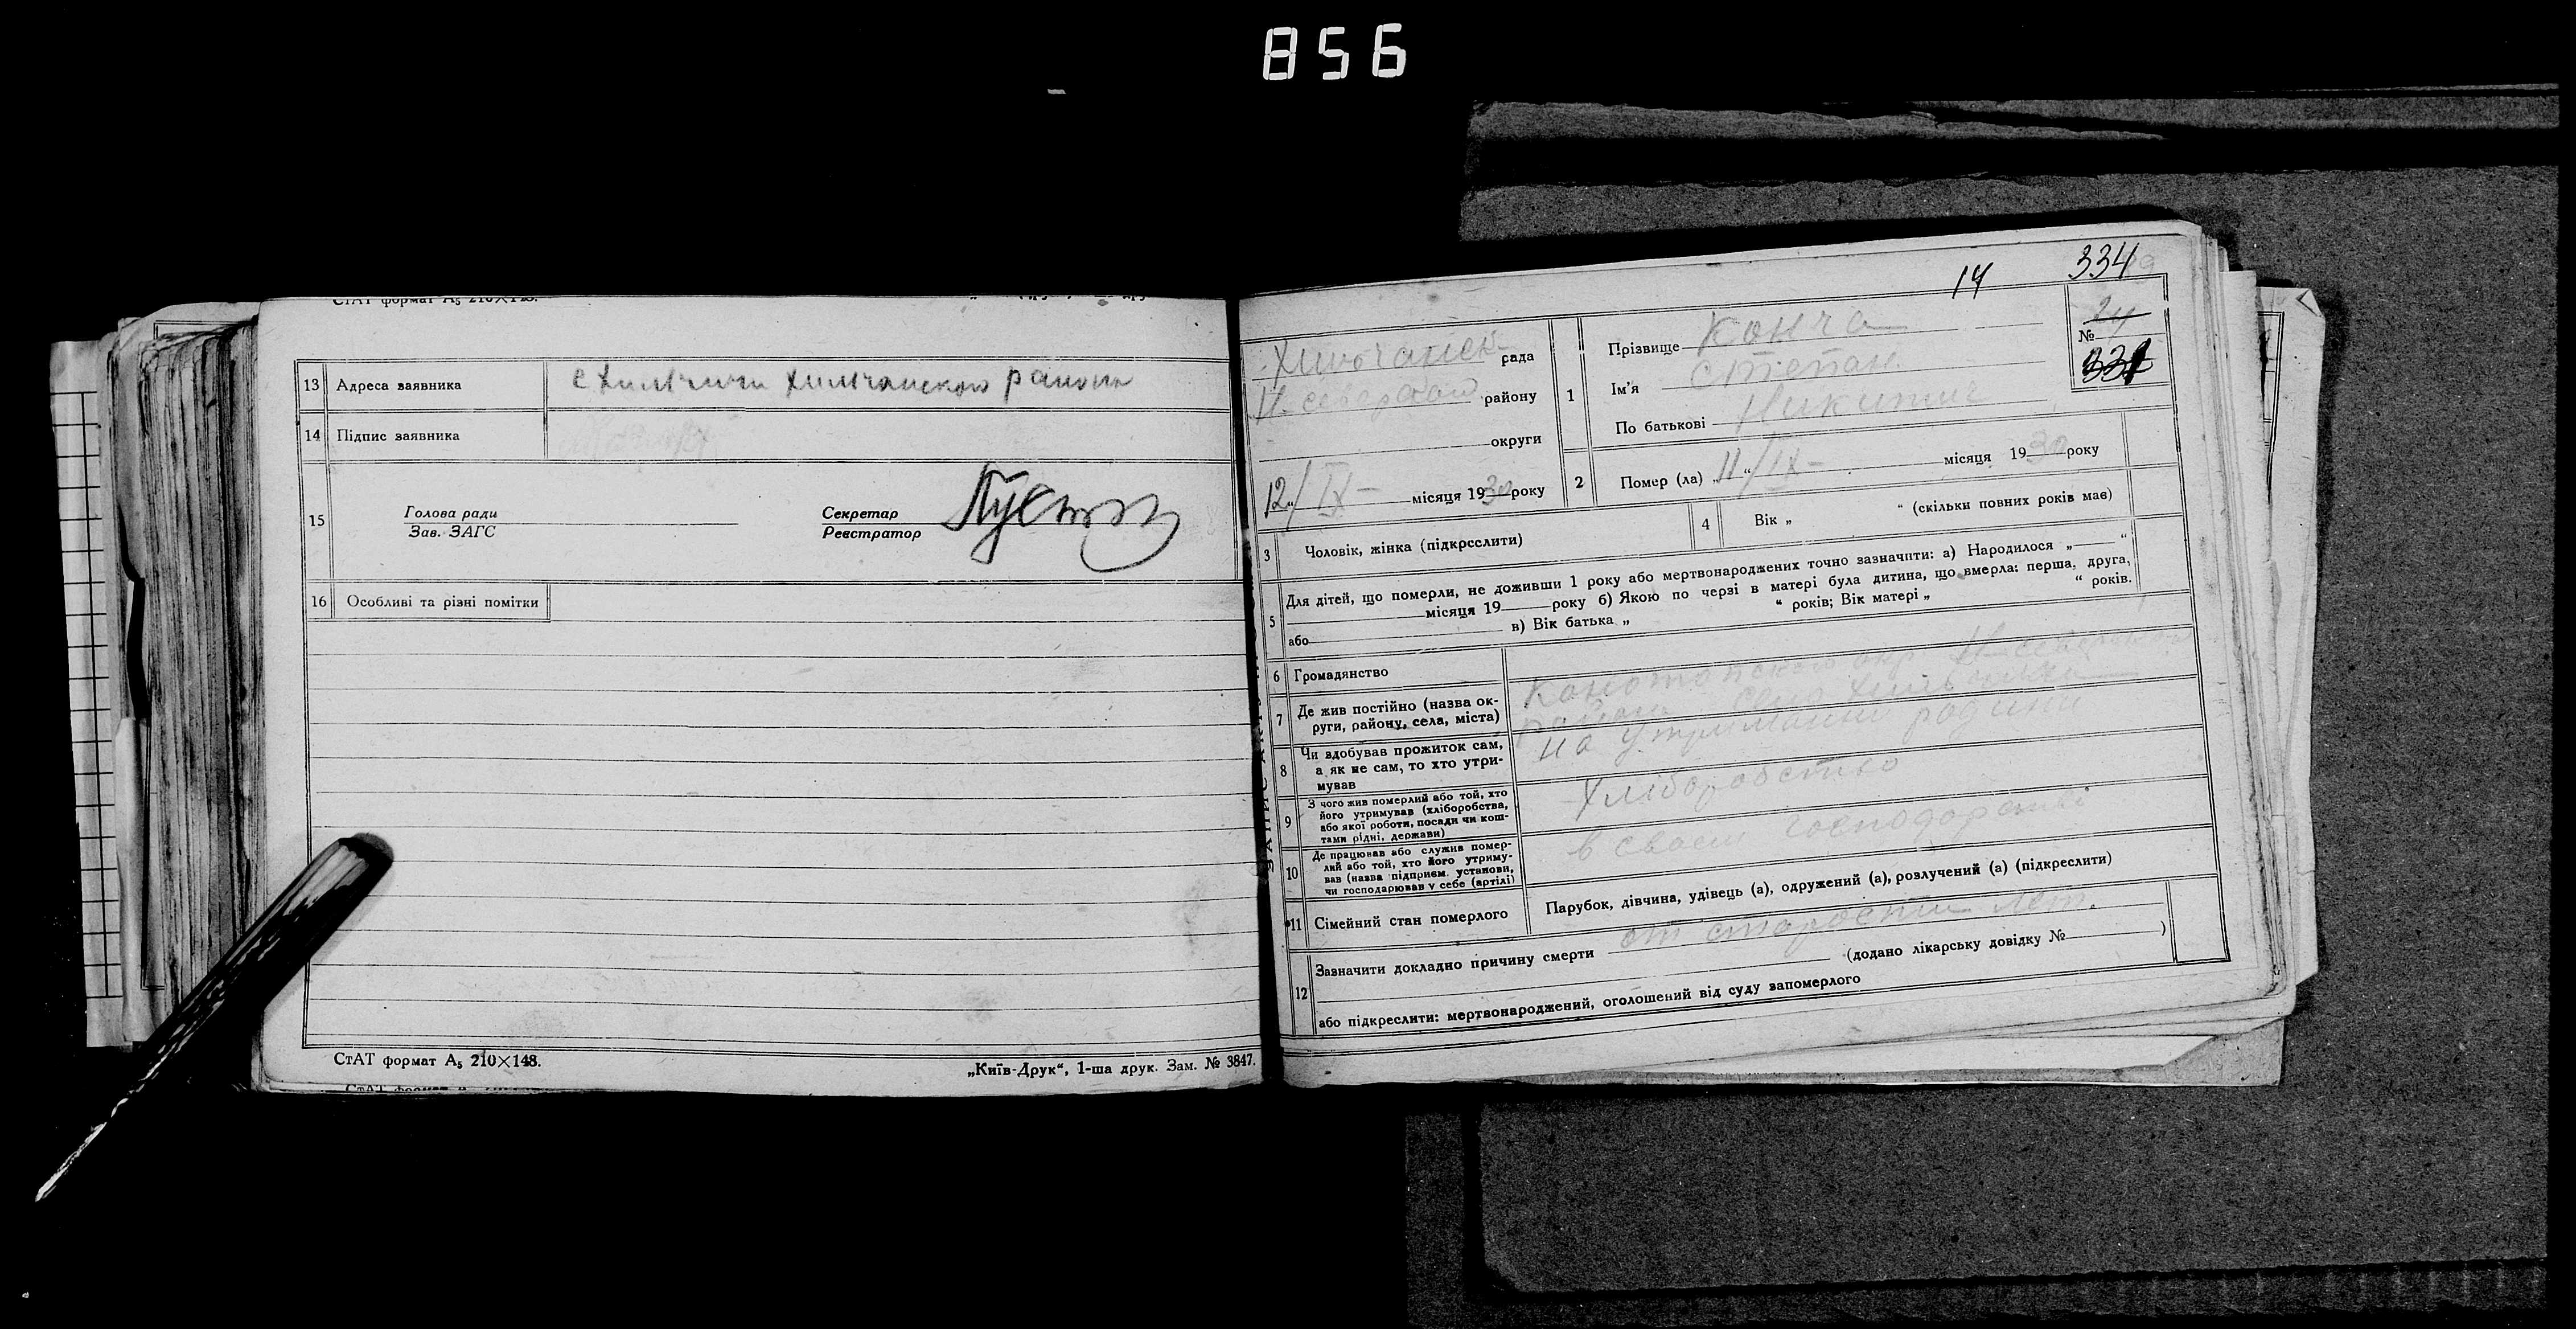 856
СтАТ формат А₅ 210×148.
13 Адреса заявника с Хильчичи Хильчанского района
14 Підпис заявника
15 Голова ради
Зав. ЗАГС
Секретар
Реєстратор
16 Особливі та різні помітки
СтАТ формат А₅ 210×148.
„Київ-Друк“, 1-ша друк. Зам. № 3847.
14 334
рада
району
округи
12 „/IX– місяця 1930 року
1 Прізвище Конча
Ім'я Степан
По батькові Никитич
№ 24
331
2 Помер (ла) „11“/IX– місяця 1930 року
3 Чоловік, жінка (підкреслити)
4 Вік „ “ (скільки повних років має)
5 Для дітей, що померли, не доживши 1 року або мертвонароджених точно зазначити: а) Народилося „ “
місяця 19 року б) Якою по черзі в матері була дитина, що вмерла: перша, друга,
або в) Вік батька „ “ років; Вік матері „ “ років.
6 Громадянство
7 Де жив постійно (назва ок-
руги, району, села, міста)
Конотопского окр
район село
8 Чи здобував прожиток сам,
а як не сам, то хто утри-
мував
на утриманні родини
9 З чого жив померлий або той, хто
його утримував (хліборобства,
або якої роботи, посади чи кош-
тами рідні, держави)
Хліборобство
10 Де працював або служив помер-
лий або той, хто його утриму-
вав (назва підприєм. установи,
чи господарював у себе (артілі)
в своем господарстві
11 Сімейний стан померлого Парубок, дівчина, удівець (а), одружений (а), розлучений (а) (підкреслити)
12 Зазначити докладно причину смерти от старости лет.
(додано лікарську довідку № )
або підкреслити: мертвонароджений, оголошений від суду запомерлого